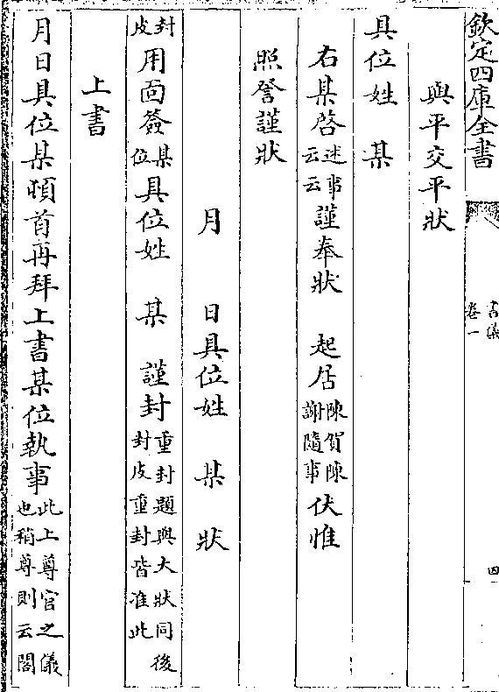 欽定四庫全書
書儀
卷一
四
與平交平狀
具位姓　某
右某啓述事云云謹奉狀　起居陳賀陳謝隨事伏惟
照詧謹狀
月　日具位姓　某　狀
封皮用面簽某位具位姓　某　謹封重封題與大狀同後封皮重封皆准此
上書
月日具位某頓首再拜上書某位執事此上尊官之儀也稍尊則云閤